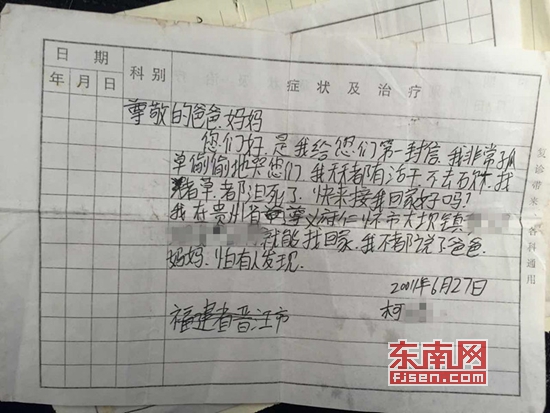 日 期
年 月 日
科别
症状及治疗
尊敬的爸爸妈妈
您们好,是我给您们第一封信,我非常孤
单偷偷地哭您们,我天天都有活干不去砍找
者草都迫死了,快来接我回家好吗?
我在贵州省遵义府仁怀市大坝镇
就能找回家,我不都说了爸爸
妈妈,怕有人发现.
2001年6月27日
福建省晋江市
柯
复诊带来·各科通用
东南网
Fjsen.com